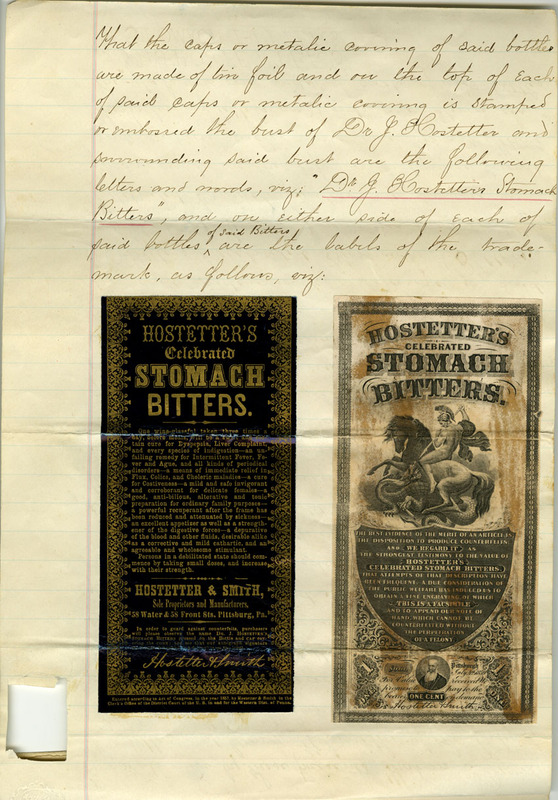 That the caps or metalic covering of said bottles
are made of tin foil and on the top of each
of said caps or metalic covering is stamped
or embossed the bust of Dr J. Hostetter and
surrounding said bust are the following
letters and words, viz; "Dr. J. Hostetter's Stomach
Bitters", and on either side of each of
said bottles of said Bitters are the labels of the trade-
mark, as follows, viz:
HOSTETTER'S
Celebrated
STOMACH
BITTERS.
One wine-glassful taken three times a
day, before meals, will be a
tain cure for Dyspepsia, Liver Complaint,
and every species of Indigestion—an un-
failing remedy for Intermittent Fever, Fe-
ver and Ague, and all kinds of periodical
disorders—a means of immediate relief in
Flux, Colics, and Choleric maladies—a cure
for Costiveness—a mild and safe invigorant
and corroborant for delicate females—a
good, anti-bilious, alterative and tonic
preparation for ordinary family purposes—
a powerful recuperant after the frame has
been reduced and attenuated by sickness—
an excellent appetizer as well as a strength-
ener of the digestive forces—a depurative
of the blood and other fluids, desirable alike
as a corrective and mild cathartic, and an
agreeable and wholesome stimulant.
Persons in a debilitated state should com-
mence by taking small doses, and increase
with their strength.
HOSTETTER & SMITH,
Sole Proprietors and Manufacturers,
58 Water & 58 Front Sts. Pittsburg, Pa.
In order to guard against counterfeits, purchasers
will please observe the name DR. J. HOSTETTER'S
STOMACH BITTERS
Hostetter & Smith
Entered according to Act of Congress, in the year 1857, by Hostetter & Smith in the
Clerk's Office of the District Court of the U. S. in and for the Western Dist. of Penna.
HOSTETTER'S
CELEBRATED
STOMACH
BITTERS.
THE BEST EVIDENCE OF THE MERIT OF AN ARTICLE IS
THE DISPOSITION TO PRODUCE COUNTERFEITS
AND WE REGARD IT AS
THE STRONGEST TESTIMONY TO THE VALUE OF
HOSTETTER'S
CELEBRATED STOMACH BITTERS,
THAT ATTEMPTS OF THAT DESCRIPTION HAVE
BEEN FREQUENT. A DUE CONSIDERATION OF
THE PUBLIC WELFARE HAS INDUCED US TO
OBTAIN A FINE ENGRAVING, OF WHICH
THIS IS A FACSIMILE
AND TO APPEND OUR NOTE OF
HAND, WHICH CANNOT BE
COUNTERFEITED WITHOUT
THE PERPETRATION
OF A FELONY
Pittsburgh
ONE CENT
Hostetter & Smith